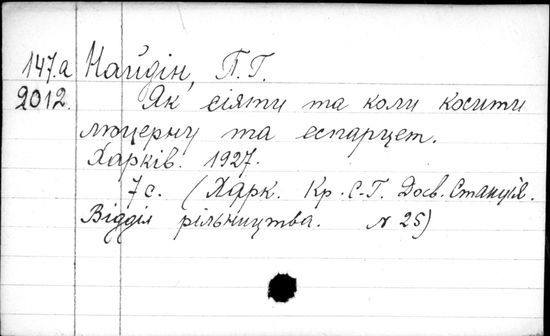 147.а Найдін, П.Г.
2012. Як сіяти та коли косити
люцерну та еспарцет.
Харків. 1927.
7 с. (Харк. Кр. С-Г. Досв. Станція.
Відділ рільництва. N 25)